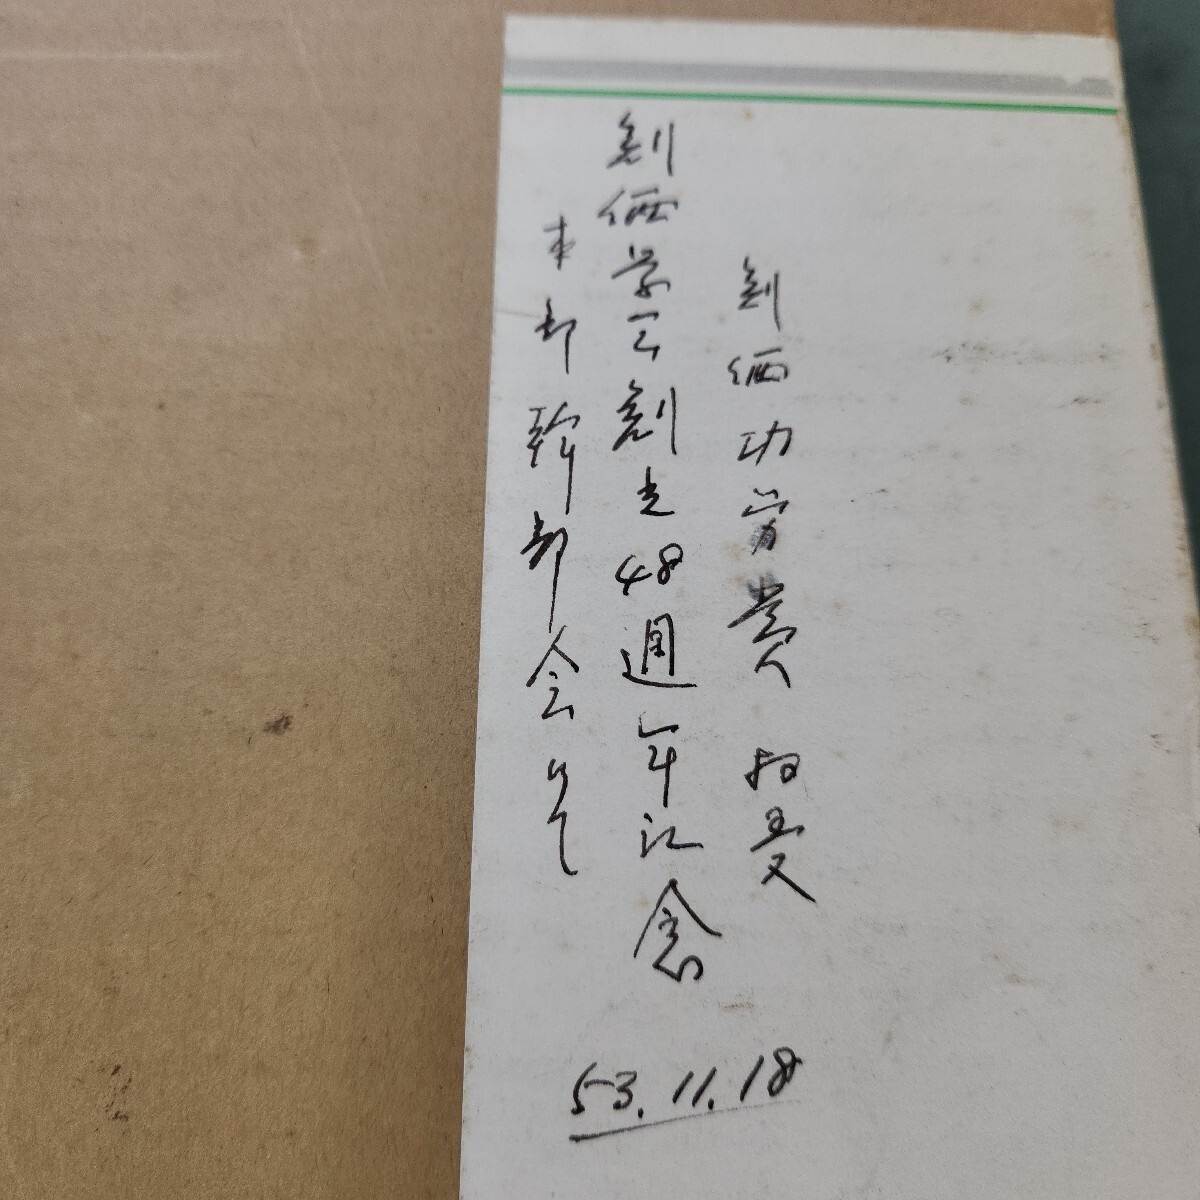 創価功労賞 拝受
創価学会創立48週年記念
本部幹部会 にて
53.11.18